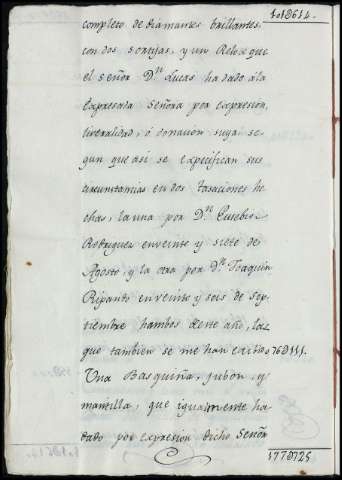 1.018614.
completo de diamantes brillantes,
con dos sortijas, y un Relox que
el señor Dn. Lucas ha dado á la
Expresada Señora por expresion,
liveralidad, ó donacion suya se-
gun que asi se expecifican sus
circunstancias en dos tasaciones he-
chas, la una por Dn. Eusebio
Rodriguez en veinte y siete de
Agosto, y la otra por Dn. Joaquin
Ripando en veinte y seis de Sep-
tiembre hambos deste año, las
que tambien se me han exivido 768111.
Una Basquiña, jubon, y
mantilla, que igualmente ha
dado por expresion dicho Señor